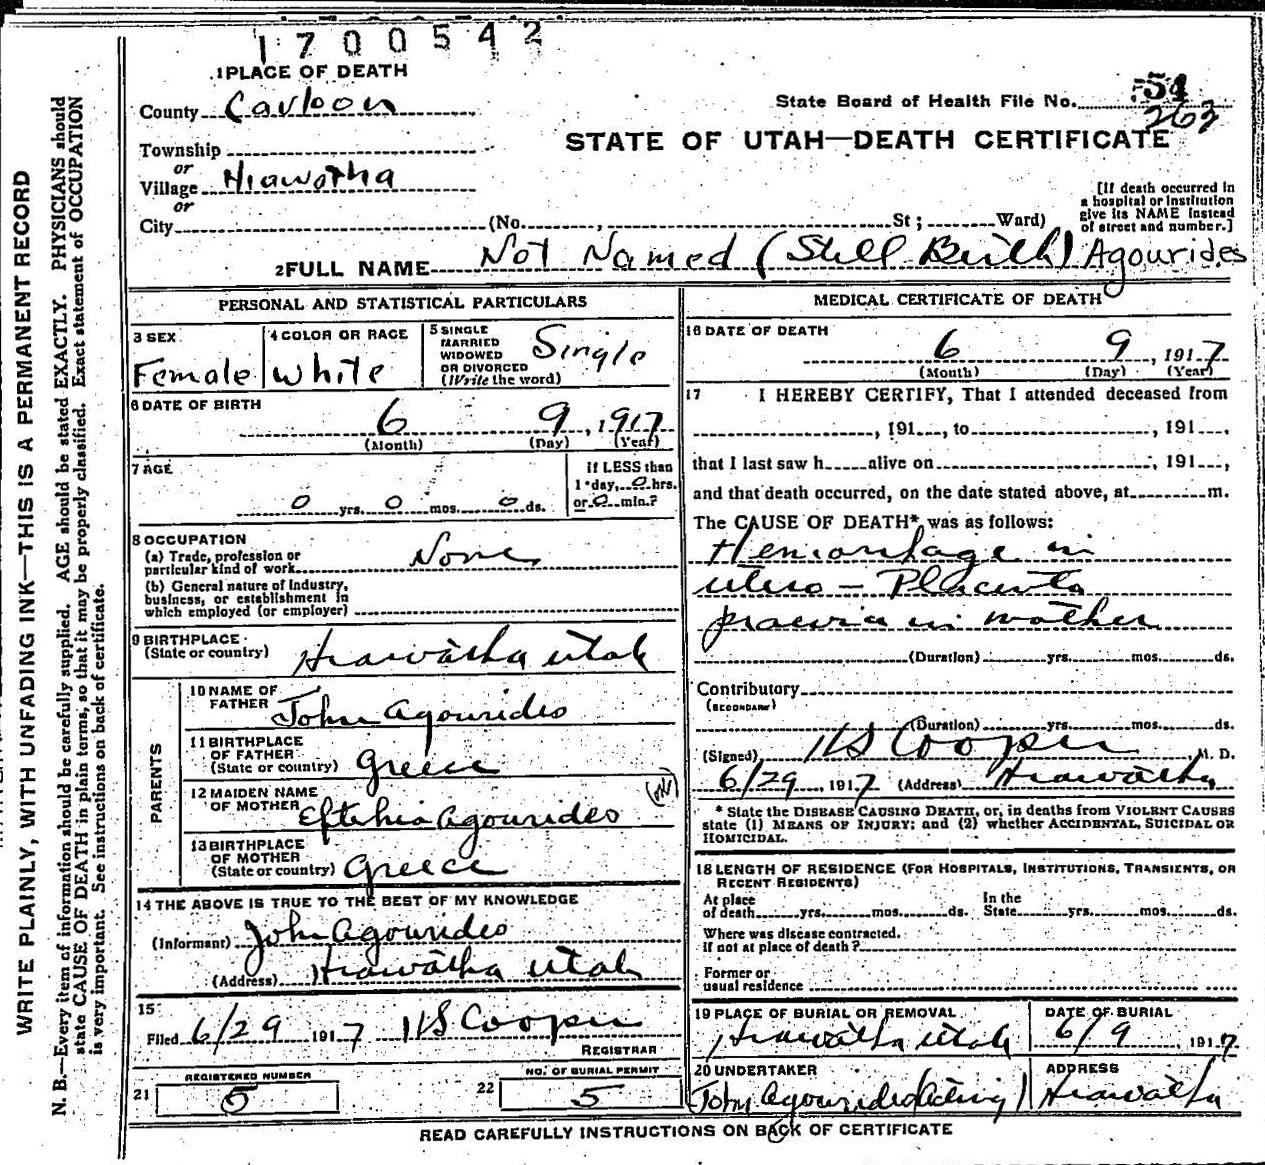 1700542
1 PLACE OF DEATH
County Carbon
State Board of Health File No. 54
262
STATE OF UTAH—DEATH CERTIFICATE
Township
or
Village Hiawatha
or
City (No. , St; Ward)
[If death occurred in
a hospital or institution
give its NAME instead
of street and number.]
2 FULL NAME Not Named (Still Birth) Agourides
PERSONAL AND STATISTICAL PARTICULARS
3 SEX
Female
4 COLOR OR RACE
White
5 SINGLE
MARRIED
WIDOWED
OR DIVORCED
(Write the word)
Single
6 DATE OF BIRTH
6 9, 1917
(Month) (Day) (Year)
7 AGE
0 yrs. 0 mos. 0 ds.
If LESS than
1 day, 0 hrs.
or 0 min.?
8 OCCUPATION
(a) Trade, profession or
particular kind of work None
(b) General nature of Industry,
business, or establishment in
which employed (or employer)
9 BIRTHPLACE
(State or country) Hiawatha Utah
PARENTS
10 NAME OF
FATHER John Agourides
11 BIRTHPLACE
OF FATHER
(State or country) Greece
12 MAIDEN NAME
OF MOTHER Eftehia Agourides (ok)
13 BIRTHPLACE
OF MOTHER
(State or country) Greece
14 THE ABOVE IS TRUE TO THE BEST OF MY KNOWLEDGE
(Informant) John Agourides
(Address) Hiawatha Utah
15
Filed 6/29 1917 HS Cooper
REGISTRAR
REGISTERED NUMBER
21 5
NO. OF BURIAL PERMIT
22 5
MEDICAL CERTIFICATE OF DEATH
16 DATE OF DEATH
6 9, 1917
(Month) (Day) (Year)
17 I HEREBY CERTIFY, That I attended deceased from
, 191 , to , 191 ,
that I last saw h alive on , 191 ,
and that death occurred, on the date stated above, at m.
The CAUSE OF DEATH* was as follows:
Hemorrhage in
utero — Placenta
praevia in mother
(Duration) yrs. mos. ds.
Contributory
(SECONDARY)
(Duration) yrs. mos. ds.
(Signed) HS Cooper M. D.
6/29, 1917 (Address) Hiawatha
* State the DISEASE CAUSING DEATH, or, in deaths from VIOLENT CAUSES
state (1) MEANS OF INJURY; and (2) whether ACCIDENTAL, SUICIDAL OR
HOMICIDAL.
18 LENGTH OF RESIDENCE (FOR HOSPITALS, INSTITUTIONS, TRANSIENTS, OR
RECENT RESIDENTS)
At place
of death yrs. mos. ds.
In the
State yrs. mos. ds.
Where was disease contracted.
if not at place of death?
Former or
usual residence
19 PLACE OF BURIAL OR REMOVAL
Hiawatha Utah
DATE OF BURIAL
6/9, 1917
20 UNDERTAKER
John Agourides (Acting)
ADDRESS
Hiawatha
READ CAREFULLY INSTRUCTIONS ON BACK OF CERTIFICATE
WRITE PLAINLY, WITH UNFADING INK—THIS IS A PERMANENT RECORD
N. B.—Every item of information should be carefully supplied. AGE should be stated EXACTLY. PHYSICIANS should
state CAUSE OF DEATH in plain terms, so that it may be properly classified. Exact statement of OCCUPATION
is very important. See instructions on back of certificate.